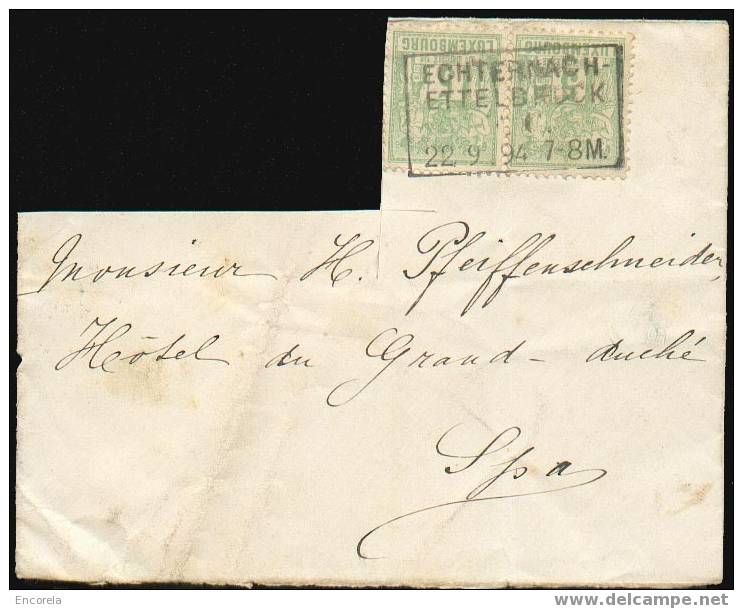 LUXEMBOURG LUXEMBOURG
ECHTERNACH-
ETTELBRUCK
C.
22 9 94 7-8M.
Monsieur H. Pfeiffenschneider,
Hôtel du Grand-duché
Spa
Encorela
delcampe.net